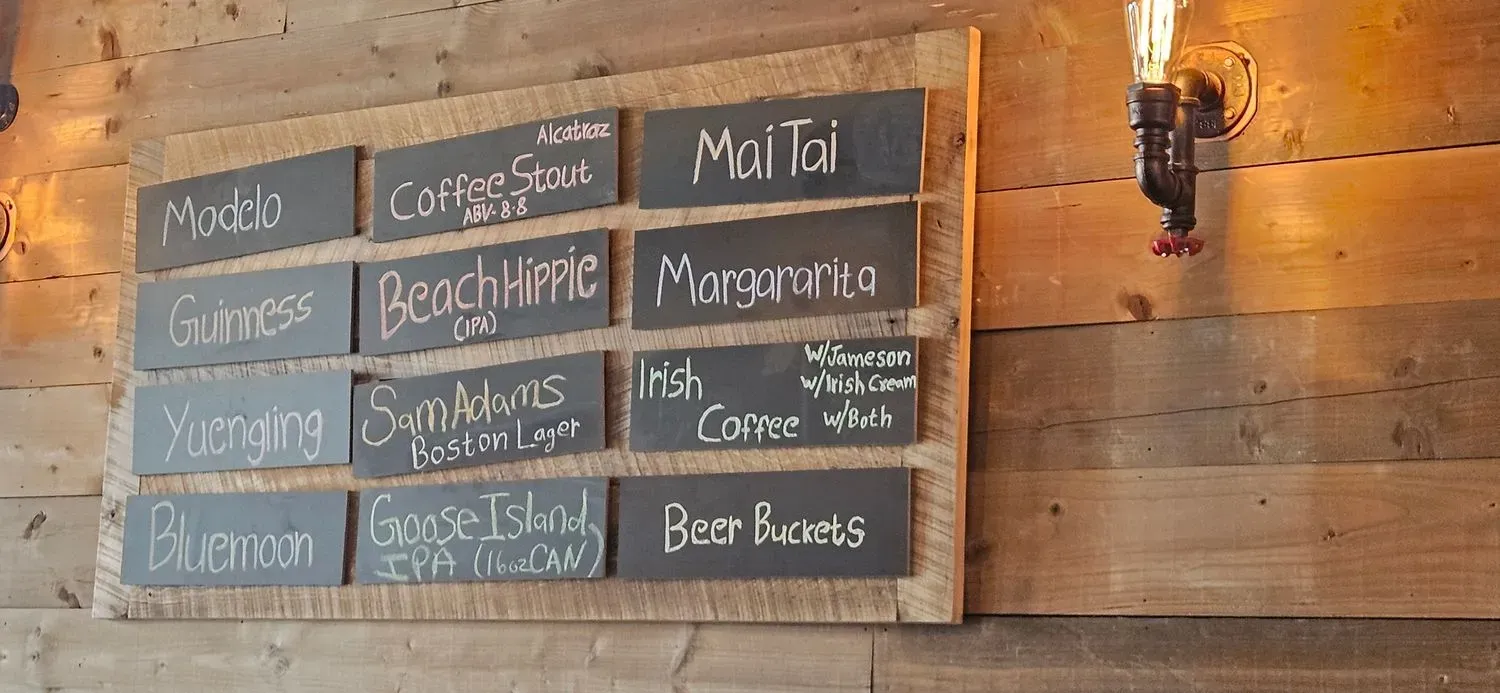 Modelo
Guinness
Yuengling
Bluemoon
Alcatraz
Coffee Stout
ABV-8.8
Beach Hippie
(IPA)
Sam Adams
Boston Lager
Goose Island
IPA (16oz CAN)
Mai Tai
Margararita
Irish
Coffee
W/Jameson
w/Irish Cream
w/Both
Beer Buckets